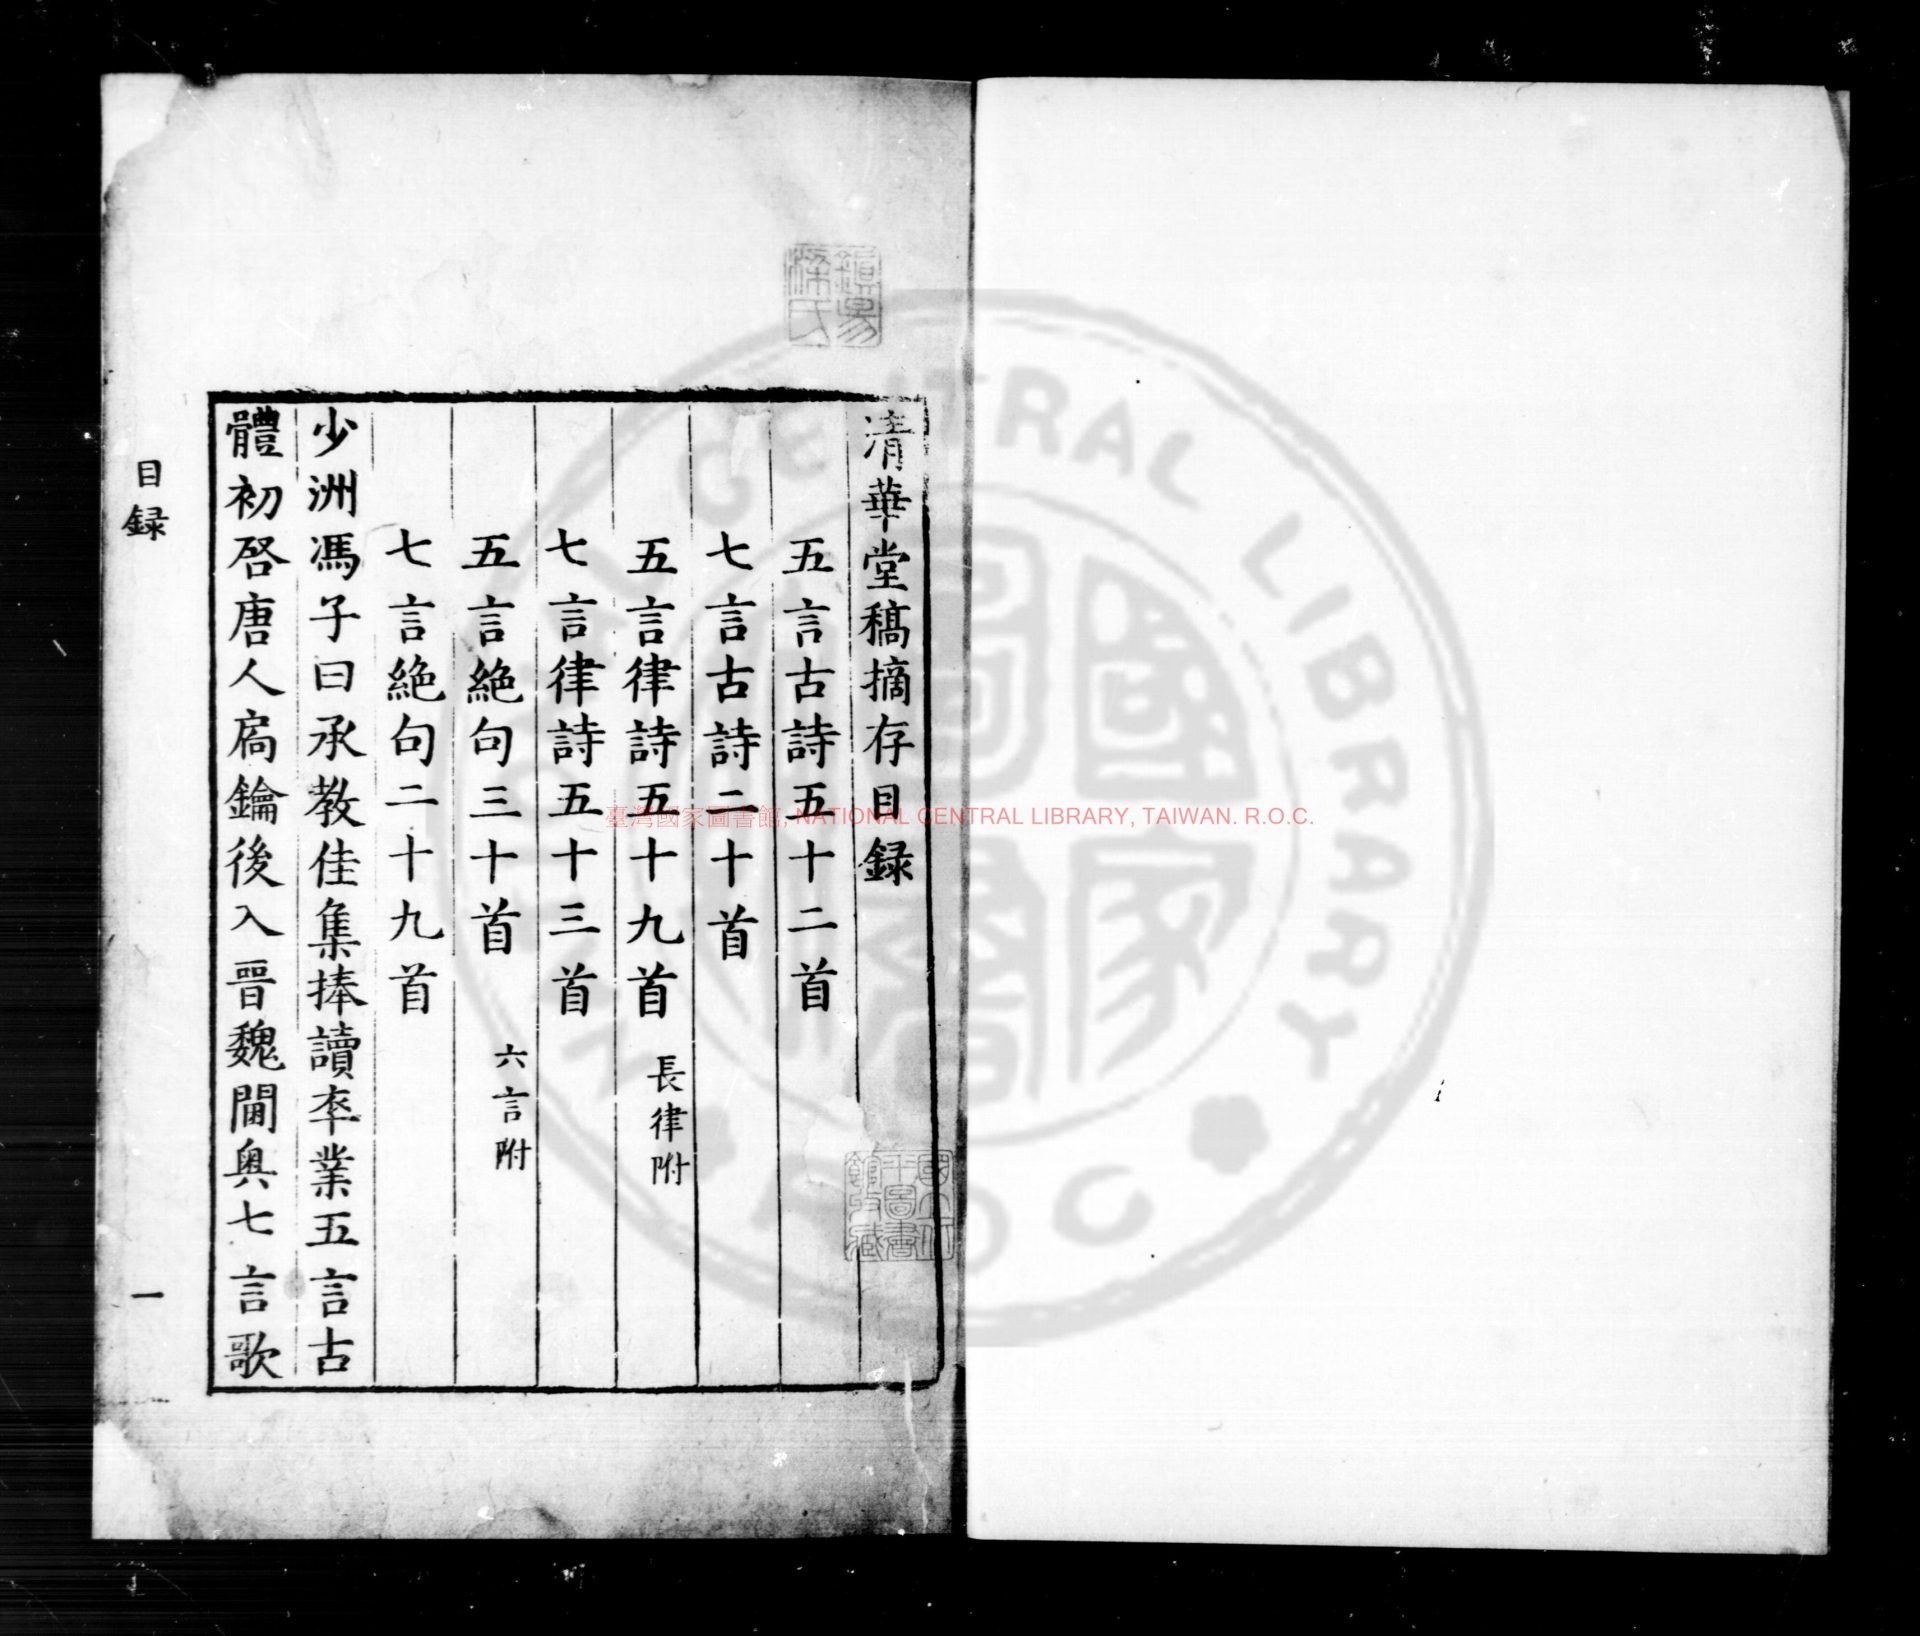 清華堂稿摘存目録
五言古詩五十二首
七言古詩二十首
五言律詩五十九首 長律附
七言律詩五十三首
五言絶句三十首 六言附
七言絶句二十九首
少洲馮子曰承教佳集捧讀率業五言古
體初啓唐人扃鑰後入晉魏閫奥七言歌
目録
一
臺灣國家圖書館, NATIONAL CENTRAL LIBRARY, TAIWAN. R.O.C.
CENTRAL LIBRARY
國家圖書
國立北
平圖書
館收藏